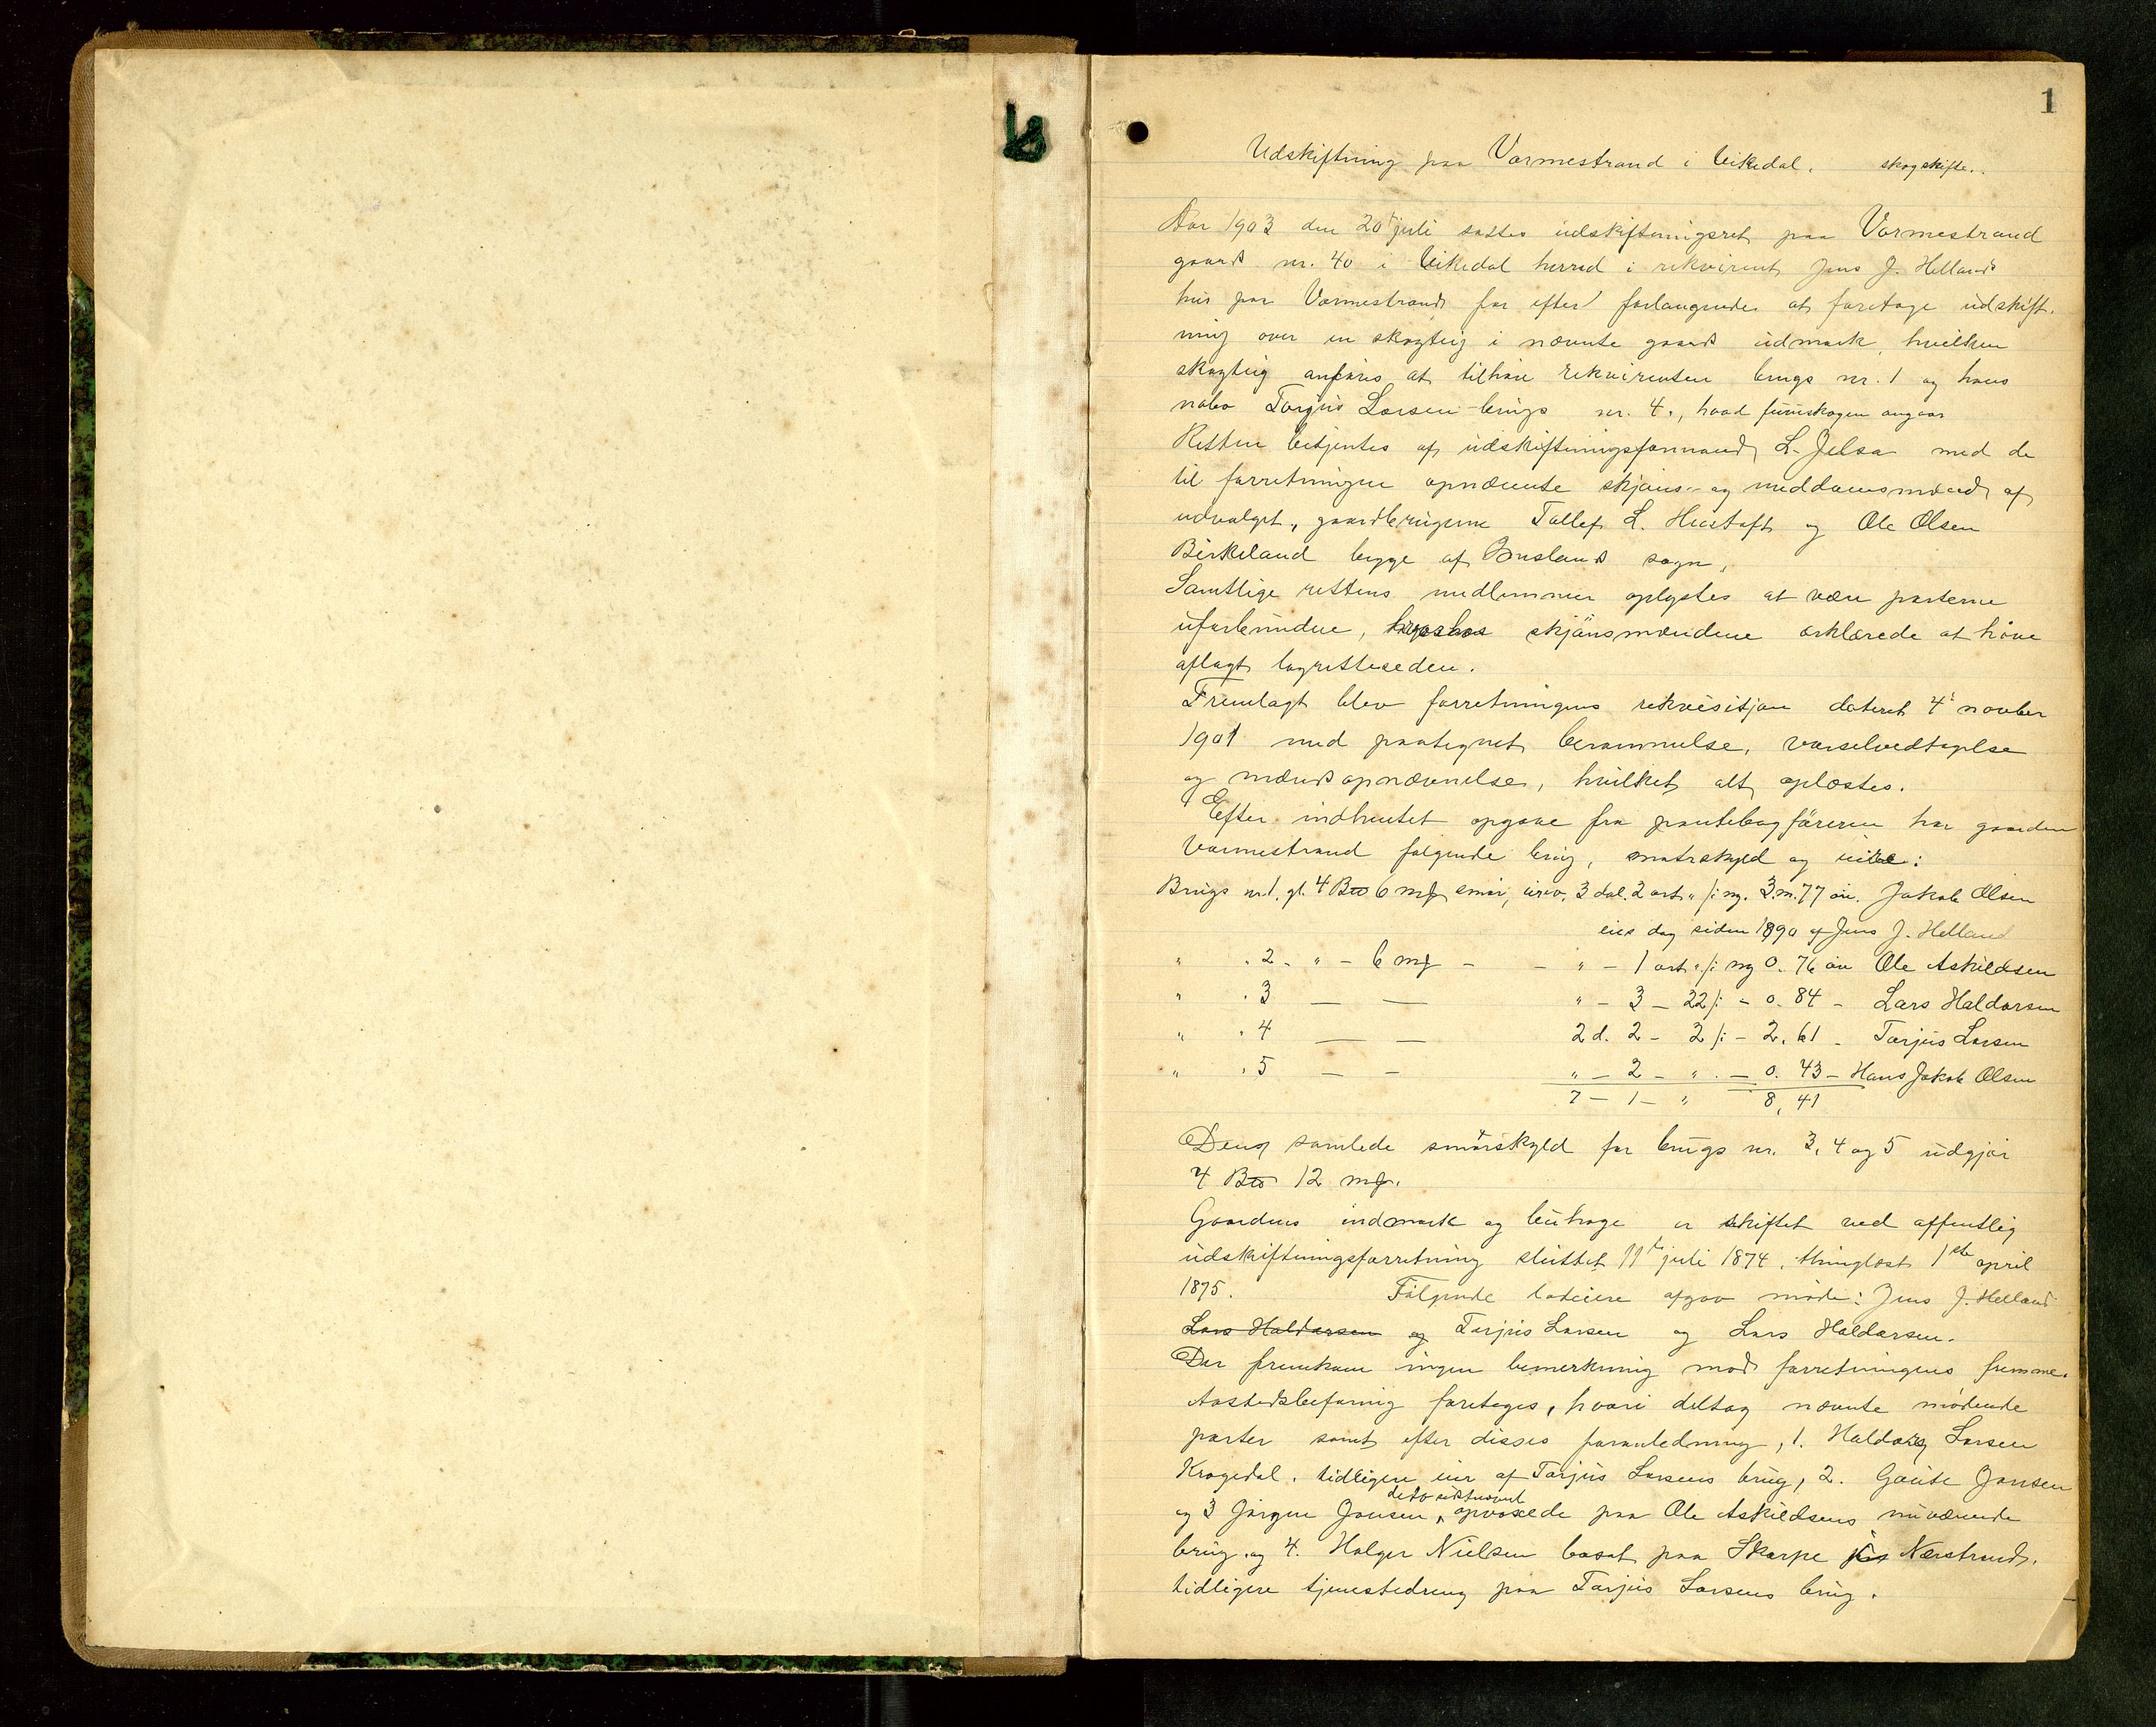 1
Udskiftning paa Varmestrand i Vikedal. skogskifte.
Aar 1903 den 20' juli sattes udskiftningsret paa Varmestrand
gaards nr. 40 i Vikedal herred i rekvirent Jens J. Hellands
hus paa Varmestrand for efter forlangende at foretage udskift-
ning over en skogteig i nævnte gaards udmark, hvilken
skogteig anføres at tilhøre rekvirenten brugs nr. 1 og hans
nabo Torjus Larsen brugs nr. 4., hvad furuskogen angaar
Retten betjentes af udskiftningsformand L. Jelsa med de
til forretningen opnævnte skjøns- og meddomsmænd af
udvalget, gaardbrugerne Tollef L. Hustoft og Ole Olsen
Birkeland begge af Imslands sogn,
Samtlige rettens medlemmer oplystes at være parterne
uforbundne, skjønsmændene erklærede at have
aflagt lagretteseden.
Fremlagt blev forretningens rekvisitjon dateret 4' novber
1901 med paategnet berammelse, varselvedtagelse
og mændsopnævnelse, hvilket alt oplæstes.
Efter indhentet opgave fra pantebogføreren har gaarden
Varmestrand følgende brug, matrskyld og eiere:
Brugs nr. 1. gl. 4 Bts 6 mg smør, urev. 3 dal. 2 ort " /: ny. 3 m. 77 øre. Jakob Olsen
eies dog siden 1890 af Jens J. Helland
" . 2 - " - 6 mg - - " - 1 ort " /: ny 0. 76 øre Ole Askildsen
" . 3 — — " - 3 - 22 /: - 0. 84 - Lars Haldorsen
" . 4 — — 2 d. 2 - 2 /: - 2. 61 - Torjus Larsen
" . 5 — - " - 2 - " . - 0. 43 - Hans Jakob Olsen
7 - 1 - " 8, 41
Den samlede smørskyld for brugs nr. 3, 4 og 5 udgjør
4 Bts 12 mg.
Gaardens indmark og beitehage er skiftet ved offentlig
udskiftningsforretning sluttet 11te juli 1874, thinglæst 1ste april
1875. Følgende lodeiere afgav møde: Jens J. Helland
Lars Haldorsen og Torjus Larsen og Lars Haldorsen.
Der fremkom ingen bemerkning mod forretningens fremme.
Aastedsbefaring foretoges, hvori deltog nævnte mødende
parter samt efter disses foranledning, 1. Haldor Larsen
Krogedal, tidligere eier af Torjus Larsens brug, 2. Gaute Jonsen
og 3 Jørgen Jonsen, sidstnævnt opvoxede paa Ole Askildsens nuværende
brug, og 4. Holger Nielsen bosat paa Skarpe Nerstrand,
tidligere tjenestedreng paa Torjus Larsens brug.